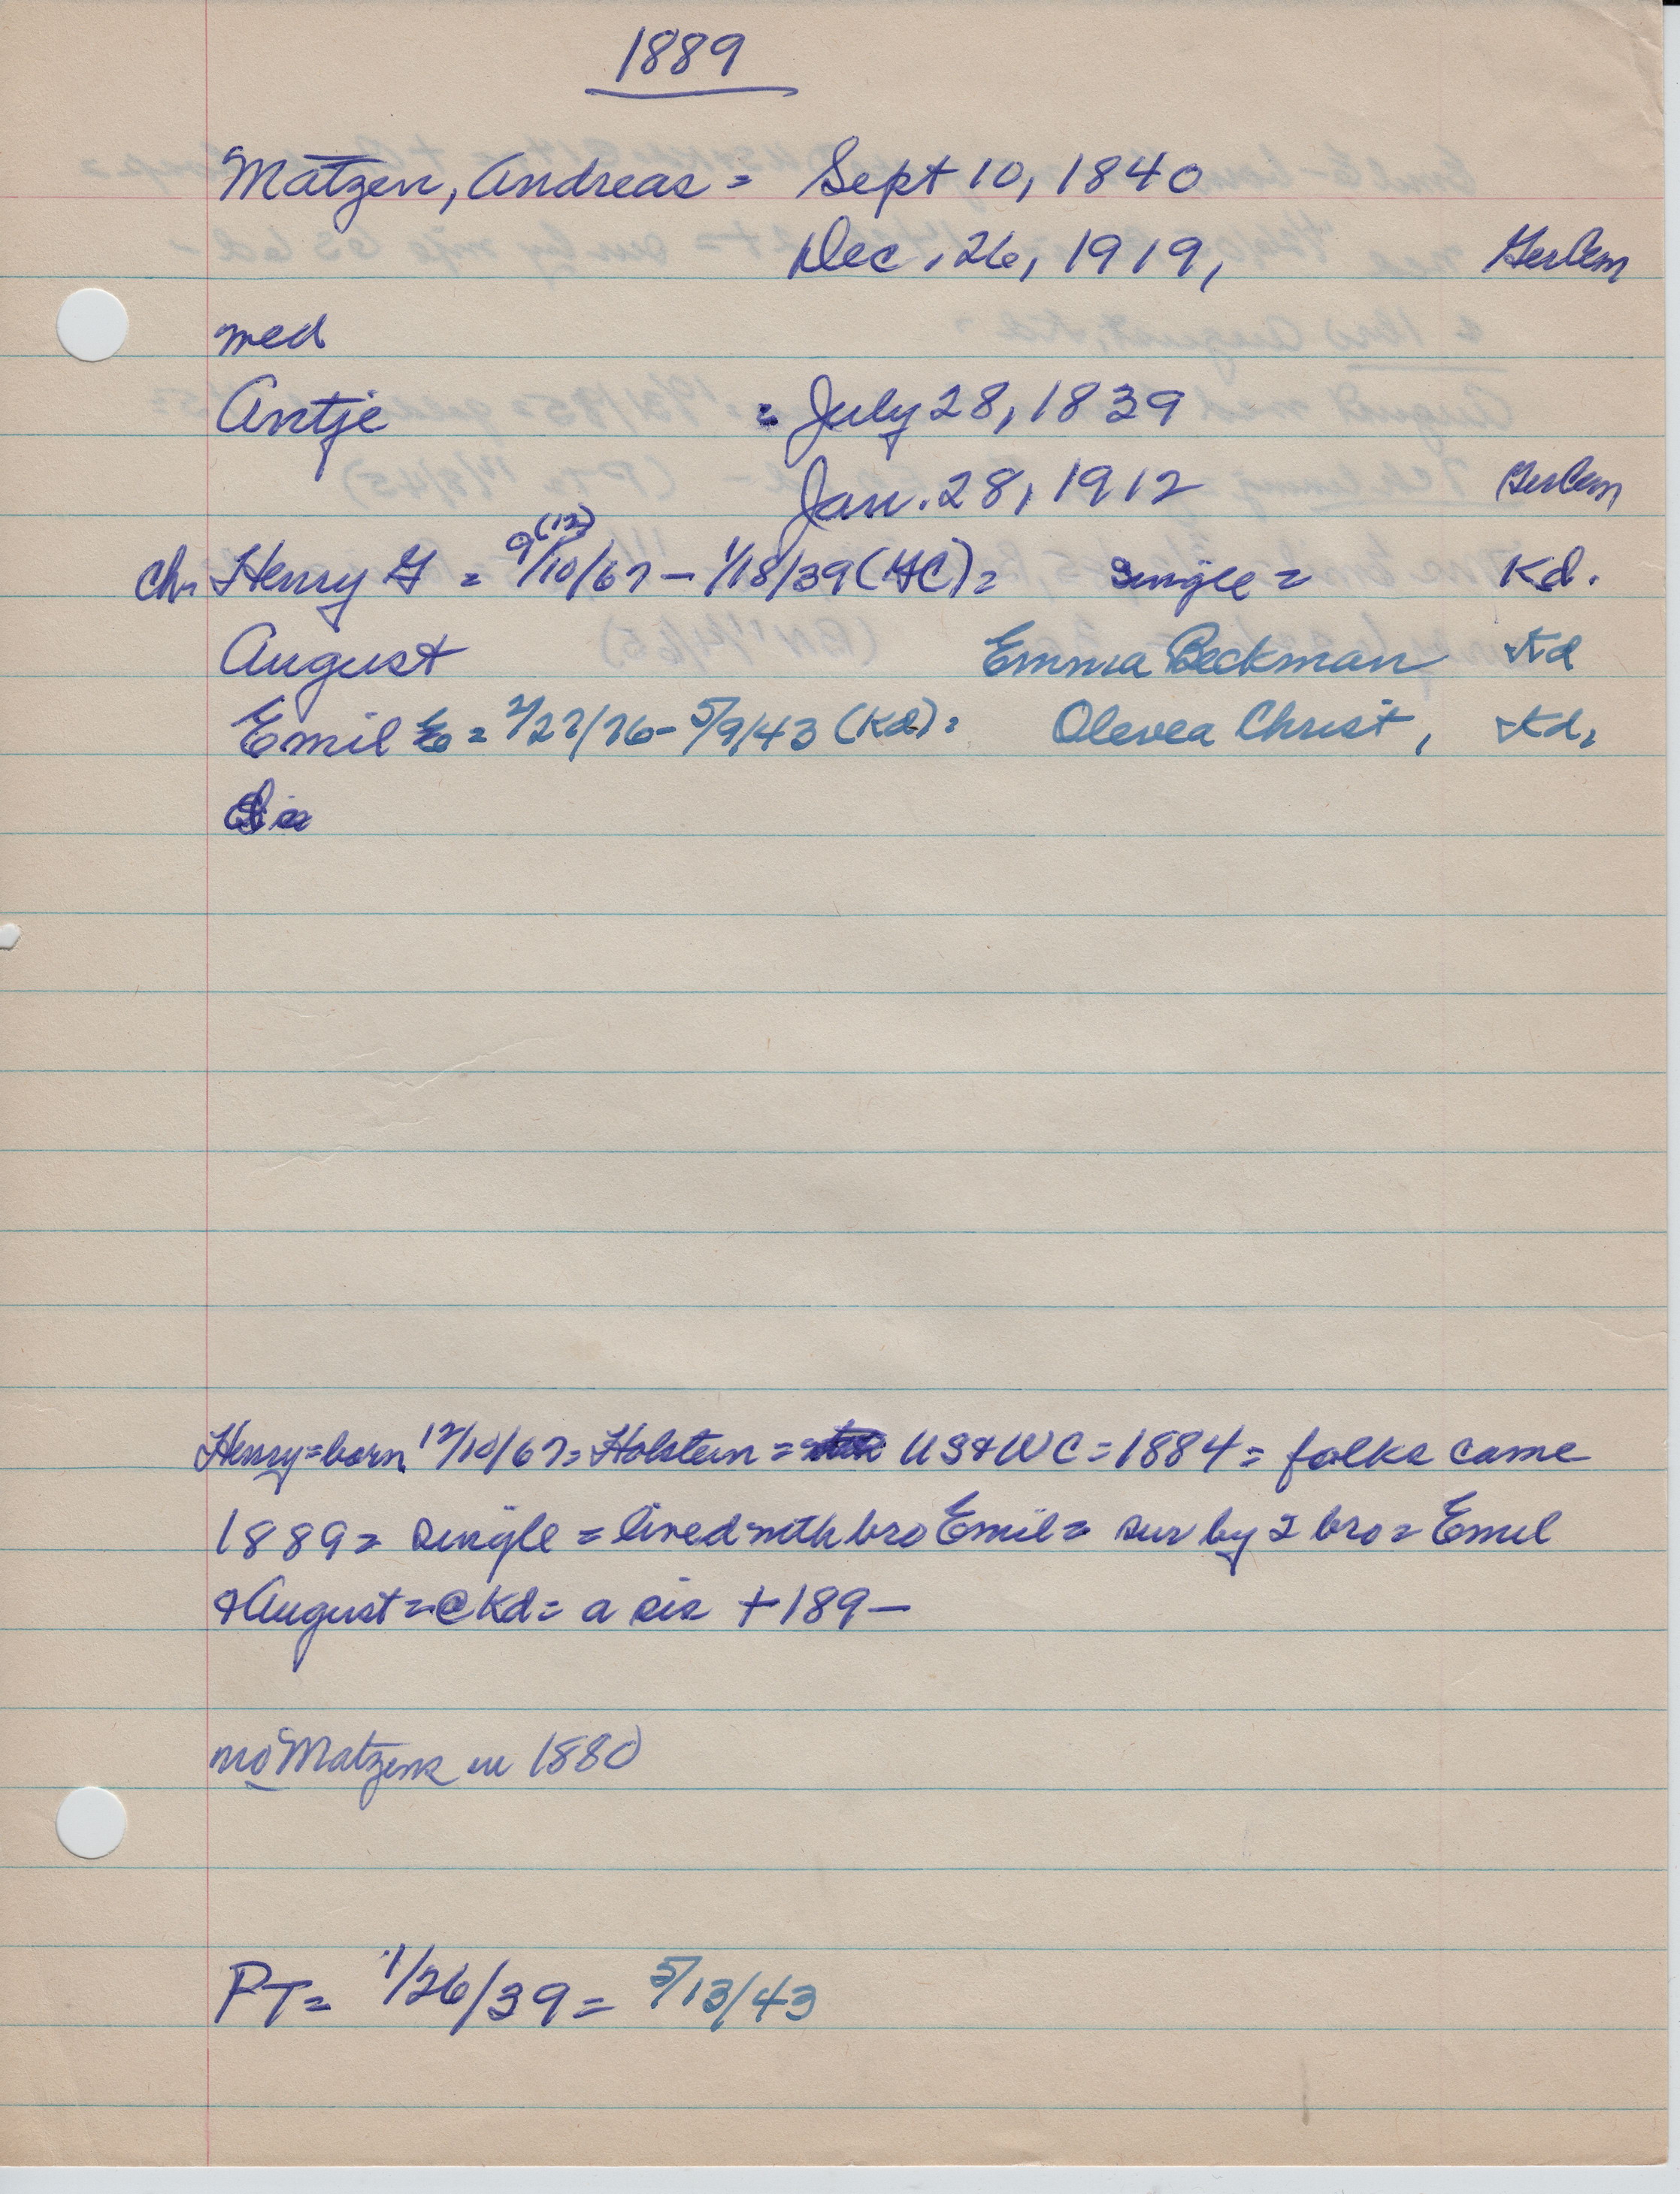 1889
Matzen, Andreas = Sept 10, 1840
Dec. 26, 1919, GerCem
med
Antje = July 28, 1839
Jan. 28, 1912 GerCem
(12)
ch. Henry G = 9/10/67 – 1/18/39 (GC) = single = Kd.
August Emma Beckman Kd
Emil E = 2/27/76 – 5/9/43 (Kd) = Olevea Christ, Kd,
Sis
Henry = born 12/10/67 = Holstein = US & WC = 1884 = folks came
1889 = single = lived with bro Emil = sur by 2 bro = Emil
& August = @ Kd = a sis + 189–
no Matzens in 1880
PT = 1/26/39 = 5/13/43